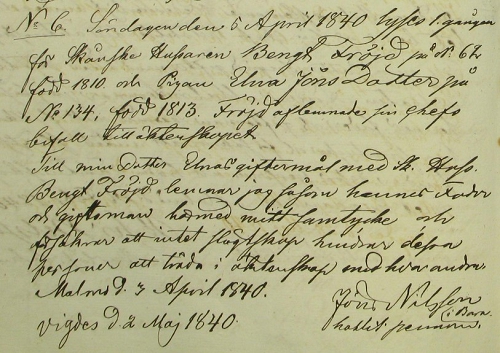 No 6. Söndagen den 5 April 1840 lystes 1. gången
för Skånske Husaren Bengt Fröjd på No 62
född 1810 och Pigan Elna Jöns Dotter på
No 134, född 1813. Fröjd aflemnade sin Chefs
bifall till äktenskapet
Till min Dotter Elnas giftermål med Sk. Huss.
Bengt Fröjd lemnar jag såsom hennes Fader
och giftoman härmed mitt samtycke och
försäkrar att intet slägtskap hindrar dessa
personer att träda i äktenskap med hvarandra.
Malmö d. 3 April 1840.
Jöns Nilsson
Vigdes d 2 Maj 1840.